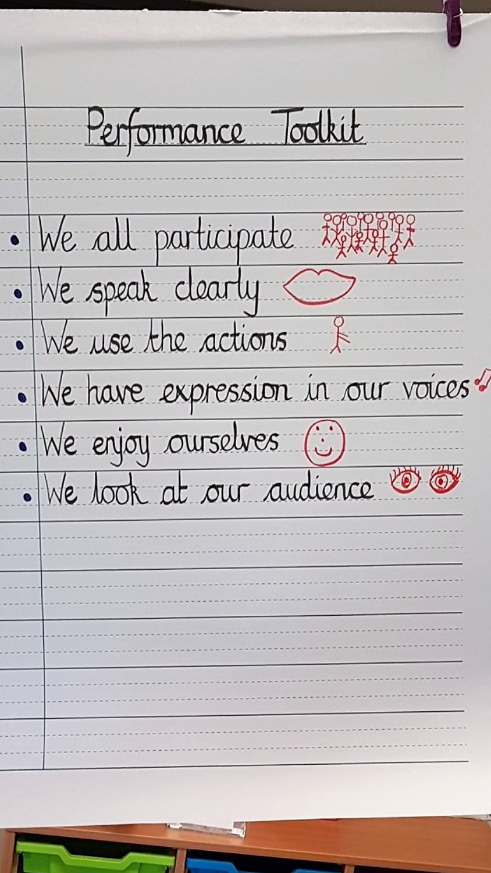 Performance Toolkit
• We all participate
• We speak clearly
• We use the actions
• We have expression in our voices
• We enjoy ourselves
• We look at our audience